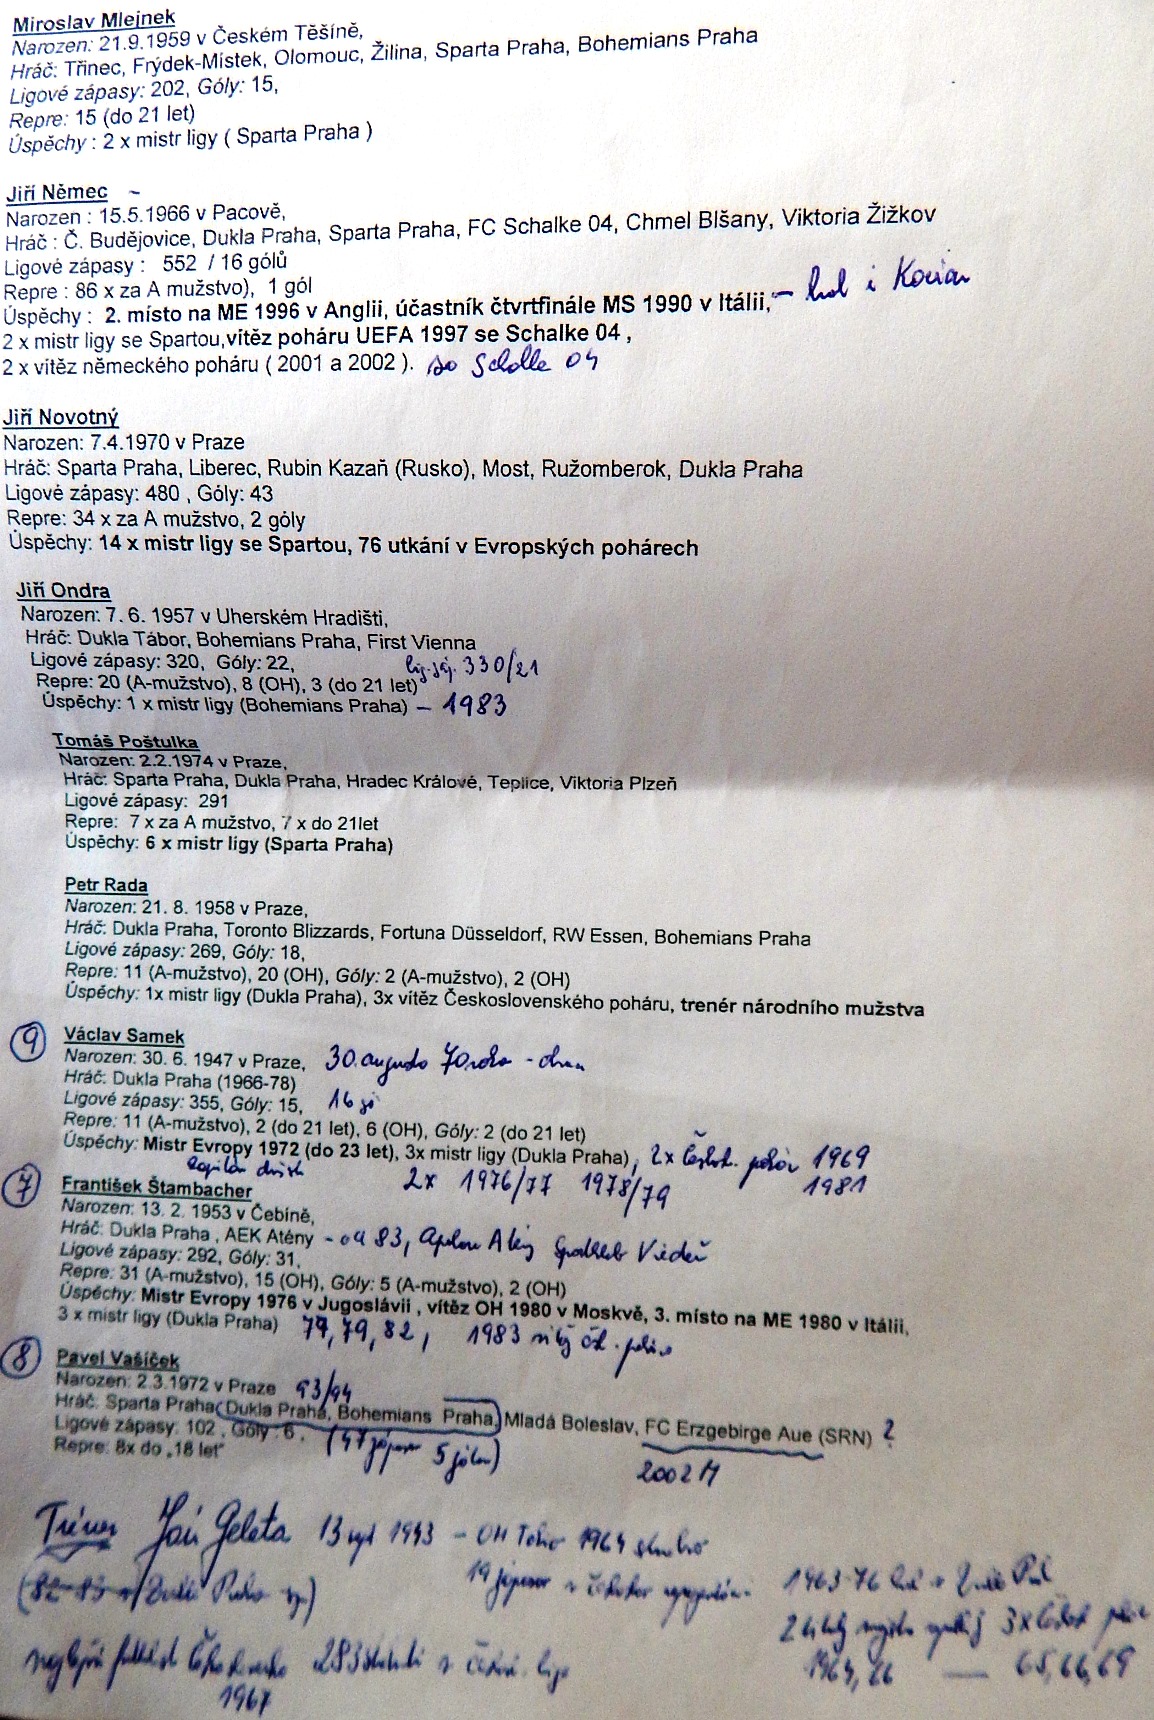 Miroslav Mlejnek
Narozen: 21.9.1959 v Českém Těšíně,
Hráč: Třinec, Frýdek-Místek, Olomouc, Žilina, Sparta Praha, Bohemians Praha
Ligové zápasy: 202, Góly: 15,
Repre: 15 (do 21 let)
Úspěchy : 2 x mistr ligy ( Sparta Praha )
Jiří Němec –
Narozen : 15.5.1966 v Pacově,
Hráč : Č. Budějovice, Dukla Praha, Sparta Praha, FC Schalke 04, Chmel Blšany, Viktoria Žižkov
Ligové zápasy : 552 / 16 gólů
Repre : 86 x za A mužstvo), 1 gól
Úspěchy : 2. místo na ME 1996 v Anglii, účastník čtvrtfinále MS 1990 v Itálii, – hrál i Kocian
2 x mistr ligy se Spartou,vítěz poháru UEFA 1997 se Schalke 04 ,
2 x vítěz německého poháru ( 2001 a 2002 ). so Schalke 04
Jiří Novotný
Narozen: 7.4.1970 v Praze
Hráč: Sparta Praha, Liberec, Rubin Kazaň (Rusko), Most, Ružomberok, Dukla Praha
Ligové zápasy: 480 , Góly: 43
Repre: 34 x za A mužstvo, 2 góly
Úspěchy: 14 x mistr ligy se Spartou, 76 utkání v Evropských pohárech
Jiří Ondra
Narozen: 7. 6. 1957 v Uherském Hradišti,
Hráč: Dukla Tábor, Bohemians Praha, First Vienna
Ligové zápasy: 320, Góly: 22, lig. záp. 330/21
Repre: 20 (A-mužstvo), 8 (OH), 3 (do 21 let)
Úspěchy: 1 x mistr ligy (Bohemians Praha) – 1983
Tomáš Poštulka
Narozen: 2.2.1974 v Praze,
Hráč: Sparta Praha, Dukla Praha, Hradec Králové, Teplice, Viktoria Plzeň
Ligové zápasy: 291
Repre: 7 x za A mužstvo, 7 x do 21let
Úspěchy: 6 x mistr ligy (Sparta Praha)
Petr Rada
Narozen: 21. 8. 1958 v Praze,
Hráč: Dukla Praha, Toronto Blizzards, Fortuna Düsseldorf, RW Essen, Bohemians Praha
Ligové zápasy: 269, Góly: 18,
Repre: 11 (A-mužstvo), 20 (OH), Góly: 2 (A-mužstvo), 2 (OH)
Úspěchy: 1x mistr ligy (Dukla Praha), 3x vítěz Československého poháru, trenér národního mužstva
9 Václav Samek
Narozen: 30. 6. 1947 v Praze, 30. augusta 70
Hráč: Dukla Praha (1966-78)
Ligové zápasy: 355, Góly: 15, 16
Repre: 11 (A-mužstvo), 2 (do 21 let), 6 (OH), Góly: 2 (do 21 let)
Úspěchy: Mistr Evropy 1972 (do 23 let), 3x mistr ligy (Dukla Praha), 2x českosl. pohár 1969
1981
2x 1976/77 1978/79
7 František Štambacher
Narozen: 13. 2. 1953 v Čebíně,
Hráč: Dukla Praha , AEK Atény – od 83,
Ligové zápasy: 292, Góly: 31,
Repre: 31 (A-mužstvo), 15 (OH), Góly: 5 (A-mužstvo), 2 (OH)
Úspěchy: Mistr Evropy 1976 v Jugoslávii , vítěz OH 1980 v Moskvě, 3. místo na ME 1980 v Itálii,
3 x mistr ligy (Dukla Praha) 79, 79, 82, 1983
8 Pavel Vašíček
Narozen: 2.3.1972 v Praze 93/94
Hráč: Sparta Praha( Dukla Praha, Bohemians Praha, Mladá Boleslav, FC Erzgebirge Aue (SRN) ?
Ligové zápasy: 102 , Góly : 6 , (47 zápasov 5 gólov)
Repre: 8x do „18 let" 2002
Tréner Ján Geleta 13 1943 – OH Tokio 1964 striebro
1963-76
3x
1964, 66 — 65, 66, 69
1967